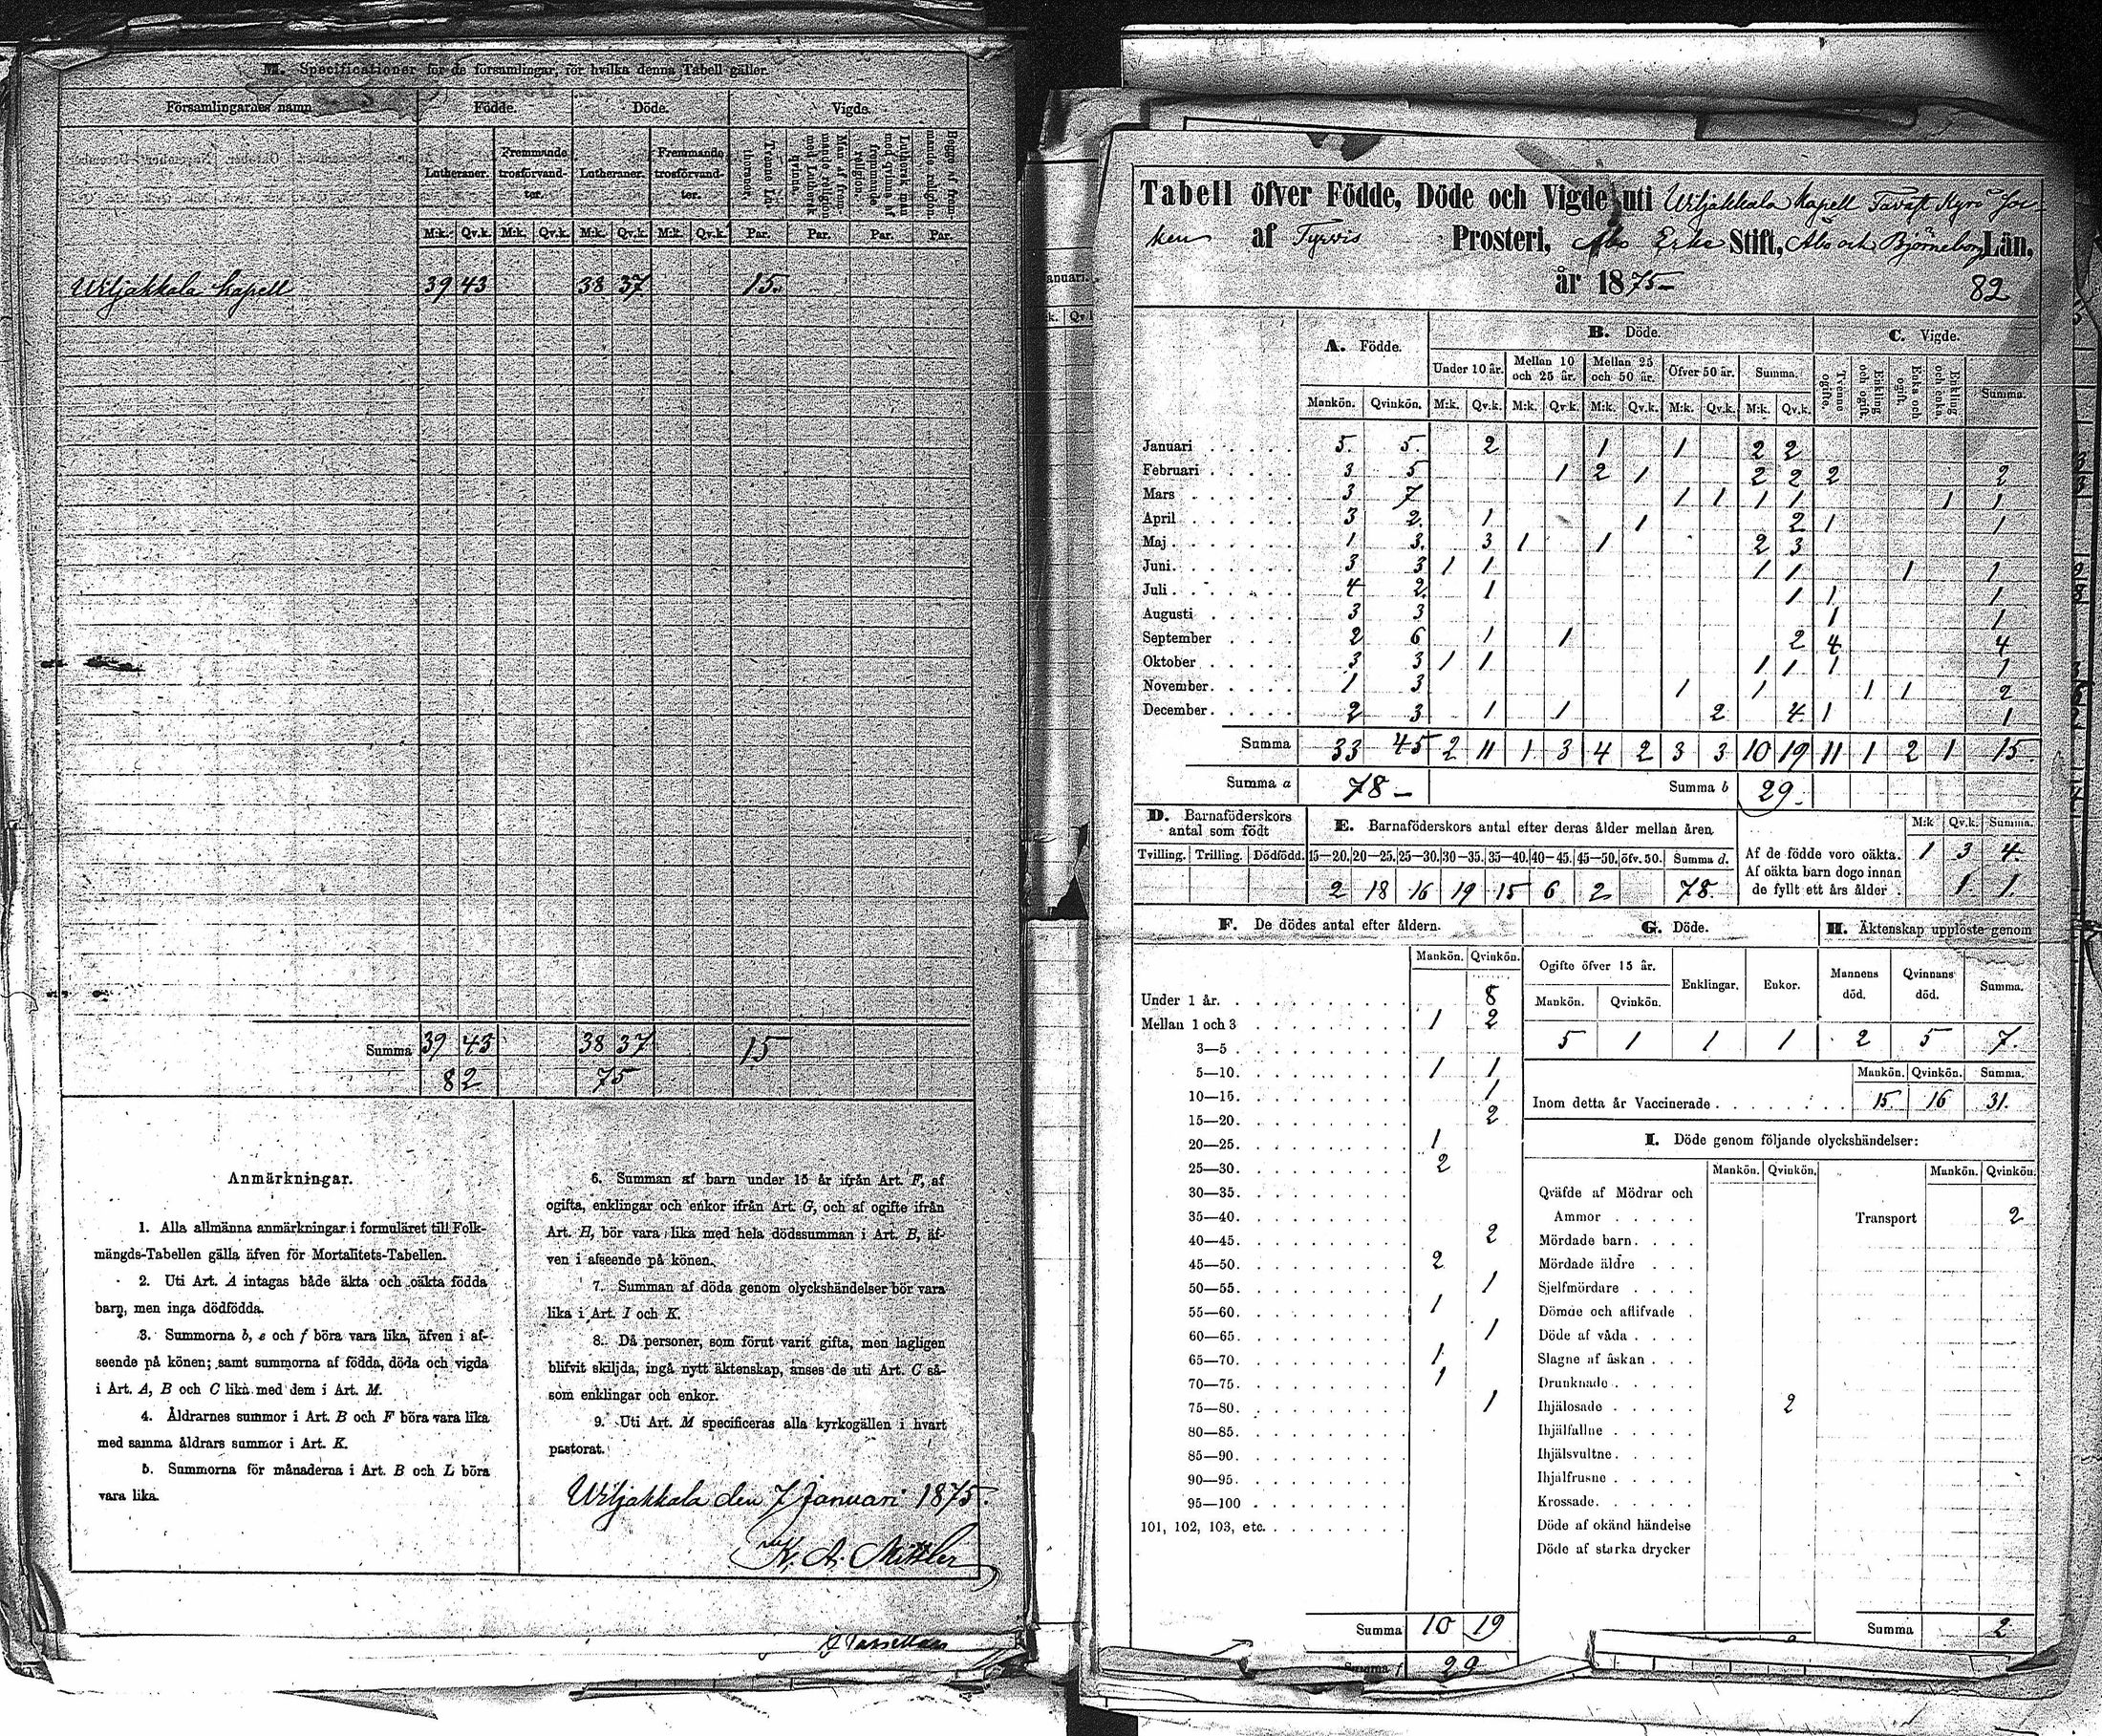 M. Specificationer för de församlingar, för hvilka denna Tabell gäller.
Församlingarnes namn Födde. Döde. Vigde.
Lutheraner. Fremmande trosförvandter. Lutheraner. Fremmande trosförvandter. Tvenne Lutheraner. Man af fremmande religion med Luthersk qvinna. Luthersk man med qvinna af fremmande religion. Begge af fremmande religion.
M:k. Qv.k. M:k. Qv.k. M:k. Qv.k. M:k. Qv.k. Par. Par. Par. Par.
Wiljakkala kapell 39 43 38 37 15.
Summa 39 43 38 37 15
82 75
Anmärkningar.
1. Alla allmänna anmärkningar i formuläret till Folk-
mängds-Tabellen gälla äfven för Mortalitets-Tabellen.
2. Uti Art. A intagas både äkta och oäkta födda
barn, men inga dödfödda.
3. Summorna b, e och f böra vara lika, äfven i af-
seende på könen; samt summorna af födda, döda och vigda
i Art. A, B och C lika med dem i Art. M.
4. Åldrarnes summor i Art. B och F böra vara lika
med samma åldrars summor i Art. K.
5. Summorna för månaderna i Art. B och L böra
vara lika.
6. Summan af barn under 15 år ifrån Art. F, af
ogifta, enklingar och enkor ifrån Art. G, och af ogifte ifrån
Art. H, bör vara lika med hela dödssumman i Art. B, äf-
ven i afseende på könen.
7. Summan af döda genom olyckshändelser bör vara
lika i Art. I och K.
8. Då personer, som förut varit gifta, men lagligen
blifvit skiljda, ingå nytt äktenskap, anses de uti Art. C så-
som enklingar och enkor.
9. Uti Art. M specificeras alla kyrkogällen i hvart
pastorat.
Wiljakkala den 7 Januari 1875.
K. A. Mittler
Tabell öfver Födde, Döde och Vigde uti Wiljakkala kapell Tavast Kyrö soc-
ken af Tyrvis Prosteri, Åbo Erke Stift, Åbo och Björneborg Län.
år 1875 82
A. Födde. B. Döde. C. Vigde.
Under 10 år. Mellan 10 och 25 år. Mellan 25 och 50 år. Öfver 50 år. Summa. Tvenne ogifte. Enkling och ogift. Enka och ogift. Enkling och enka. Summa.
Mankön. Qvinkön. M:k. Qv.k. M:k. Qv.k. M:k. Qv.k. M:k. Qv.k. M:k. Qv.k.
Januari 5. 5. 2 1 1 2 2
Februari 3 5 1 2 1 2 2 2 2
Mars 3 7 1 1 1 1 1 1
April 3 2 1 1 2 1 1
Maj 1 3. 3 1 1 2 3
Juni 3 3 1 1 1 1 1 1
Juli 4 2 1 1 1 1
Augusti 3 3 1 1
September 2 6 1 1 2 4 4
Oktober 3 3 1 1 1 1 1 1
November 1 3 1 1 1 1 2
December 2 3 1 1 2 4 1 1
Summa 33 45 2 11 1 3 4 2 3 3 10 19 11 1 2 1 15
Summa a 78 Summa b 29.
D. Barnaföderskors antal som födt
Tvilling. Trilling. Dödfödd.
E. Barnaföderskors antal efter deras ålder mellan åren.
15—20. 20—25. 25—30. 30—35. 35—40. 40—45. 45—50. öfv. 50. Summa d.
2 18 16 19 15 6 2 78.
M:k Qv.k. Summa.
Af de födde voro oäkta. 1 3 4.
Af oäkta barn dogo innan de fyllt ett års ålder 1 1.
F. De dödes antal efter åldern.
Mankön. Qvinkön.
Under 1 år. 8
Mellan 1 och 3 1 2
3—5
5—10. 1 1
10—15. 1
15—20. 2
20—25. 1
25—30. 2
30—35.
35—40.
40—45. 2
45—50. 2
50—55. 1
55—60. 1
60—65. 1
65—70. 1
70—75. 1
75—80. 1
80—85.
85—90.
90—95.
95—100
101, 102, 103, etc.
Summa 10 19
Summa f 29
G. Döde.
Ogifte öfver 15 år. Enklingar. Enkor.
Mankön. Qvinkön.
5 1 1 1
H. Äktenskap upplöste genom
Mannens död. Qvinnans död. Summa.
2 5 7.
Mankön. Qvinkön. Summa.
Inom detta år Vaccinerade 15 16 31.
I. Döde genom följande olyckshändelser:
Mankön. Qvinkön. Mankön. Qvinkön.
Qväfde af Mödrar och
Ammor Transport 2
Mördade barn
Mördade äldre
Sjelfmördare
Dömde och aflifvade
Döde af våda
Slagne af åskan
Drunknade
Ihjälosade 2
Ihjälfallne
Ihjälsvultne
Ihjälfrusne
Krossade
Döde af okänd händelse
Döde af starka drycker
Summa 2